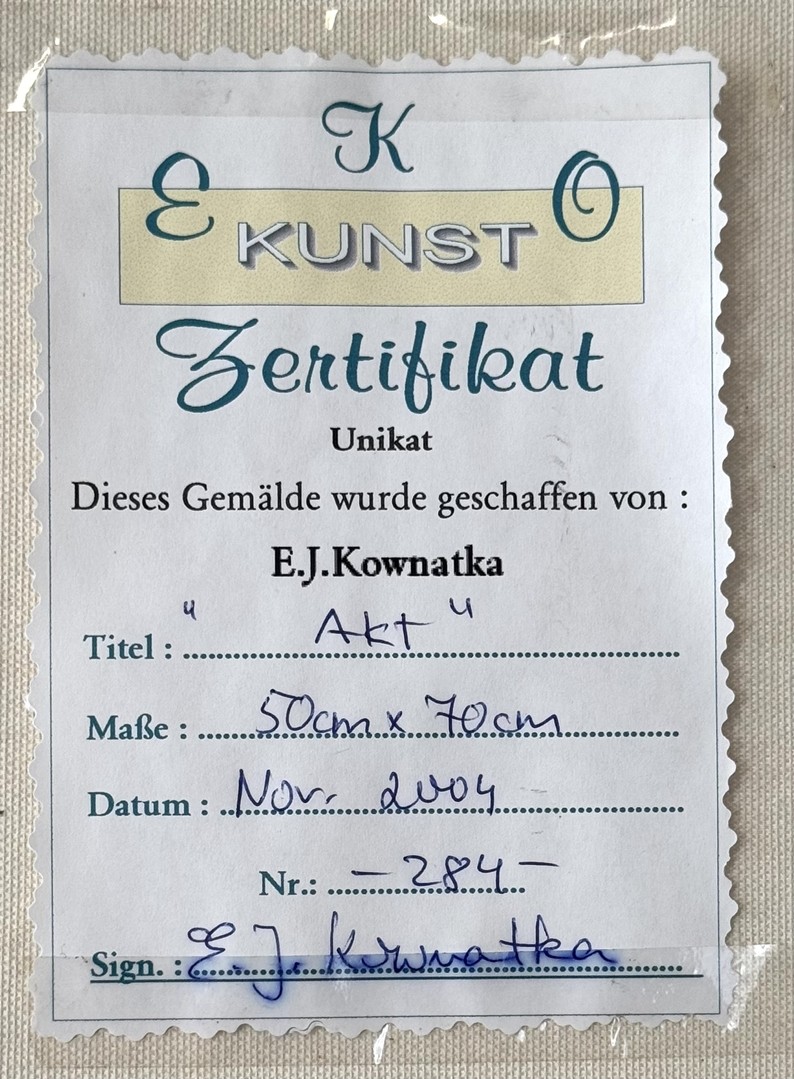 K
E KUNST O
Zertifikat
Unikat
Dieses Gemälde wurde geschaffen von :
E.J.Kownatka
Titel : "Akt"
Maße : 50cm x 70cm
Datum : Nov. 2004
Nr.: -284-
Sign. : E.J. Kownatka